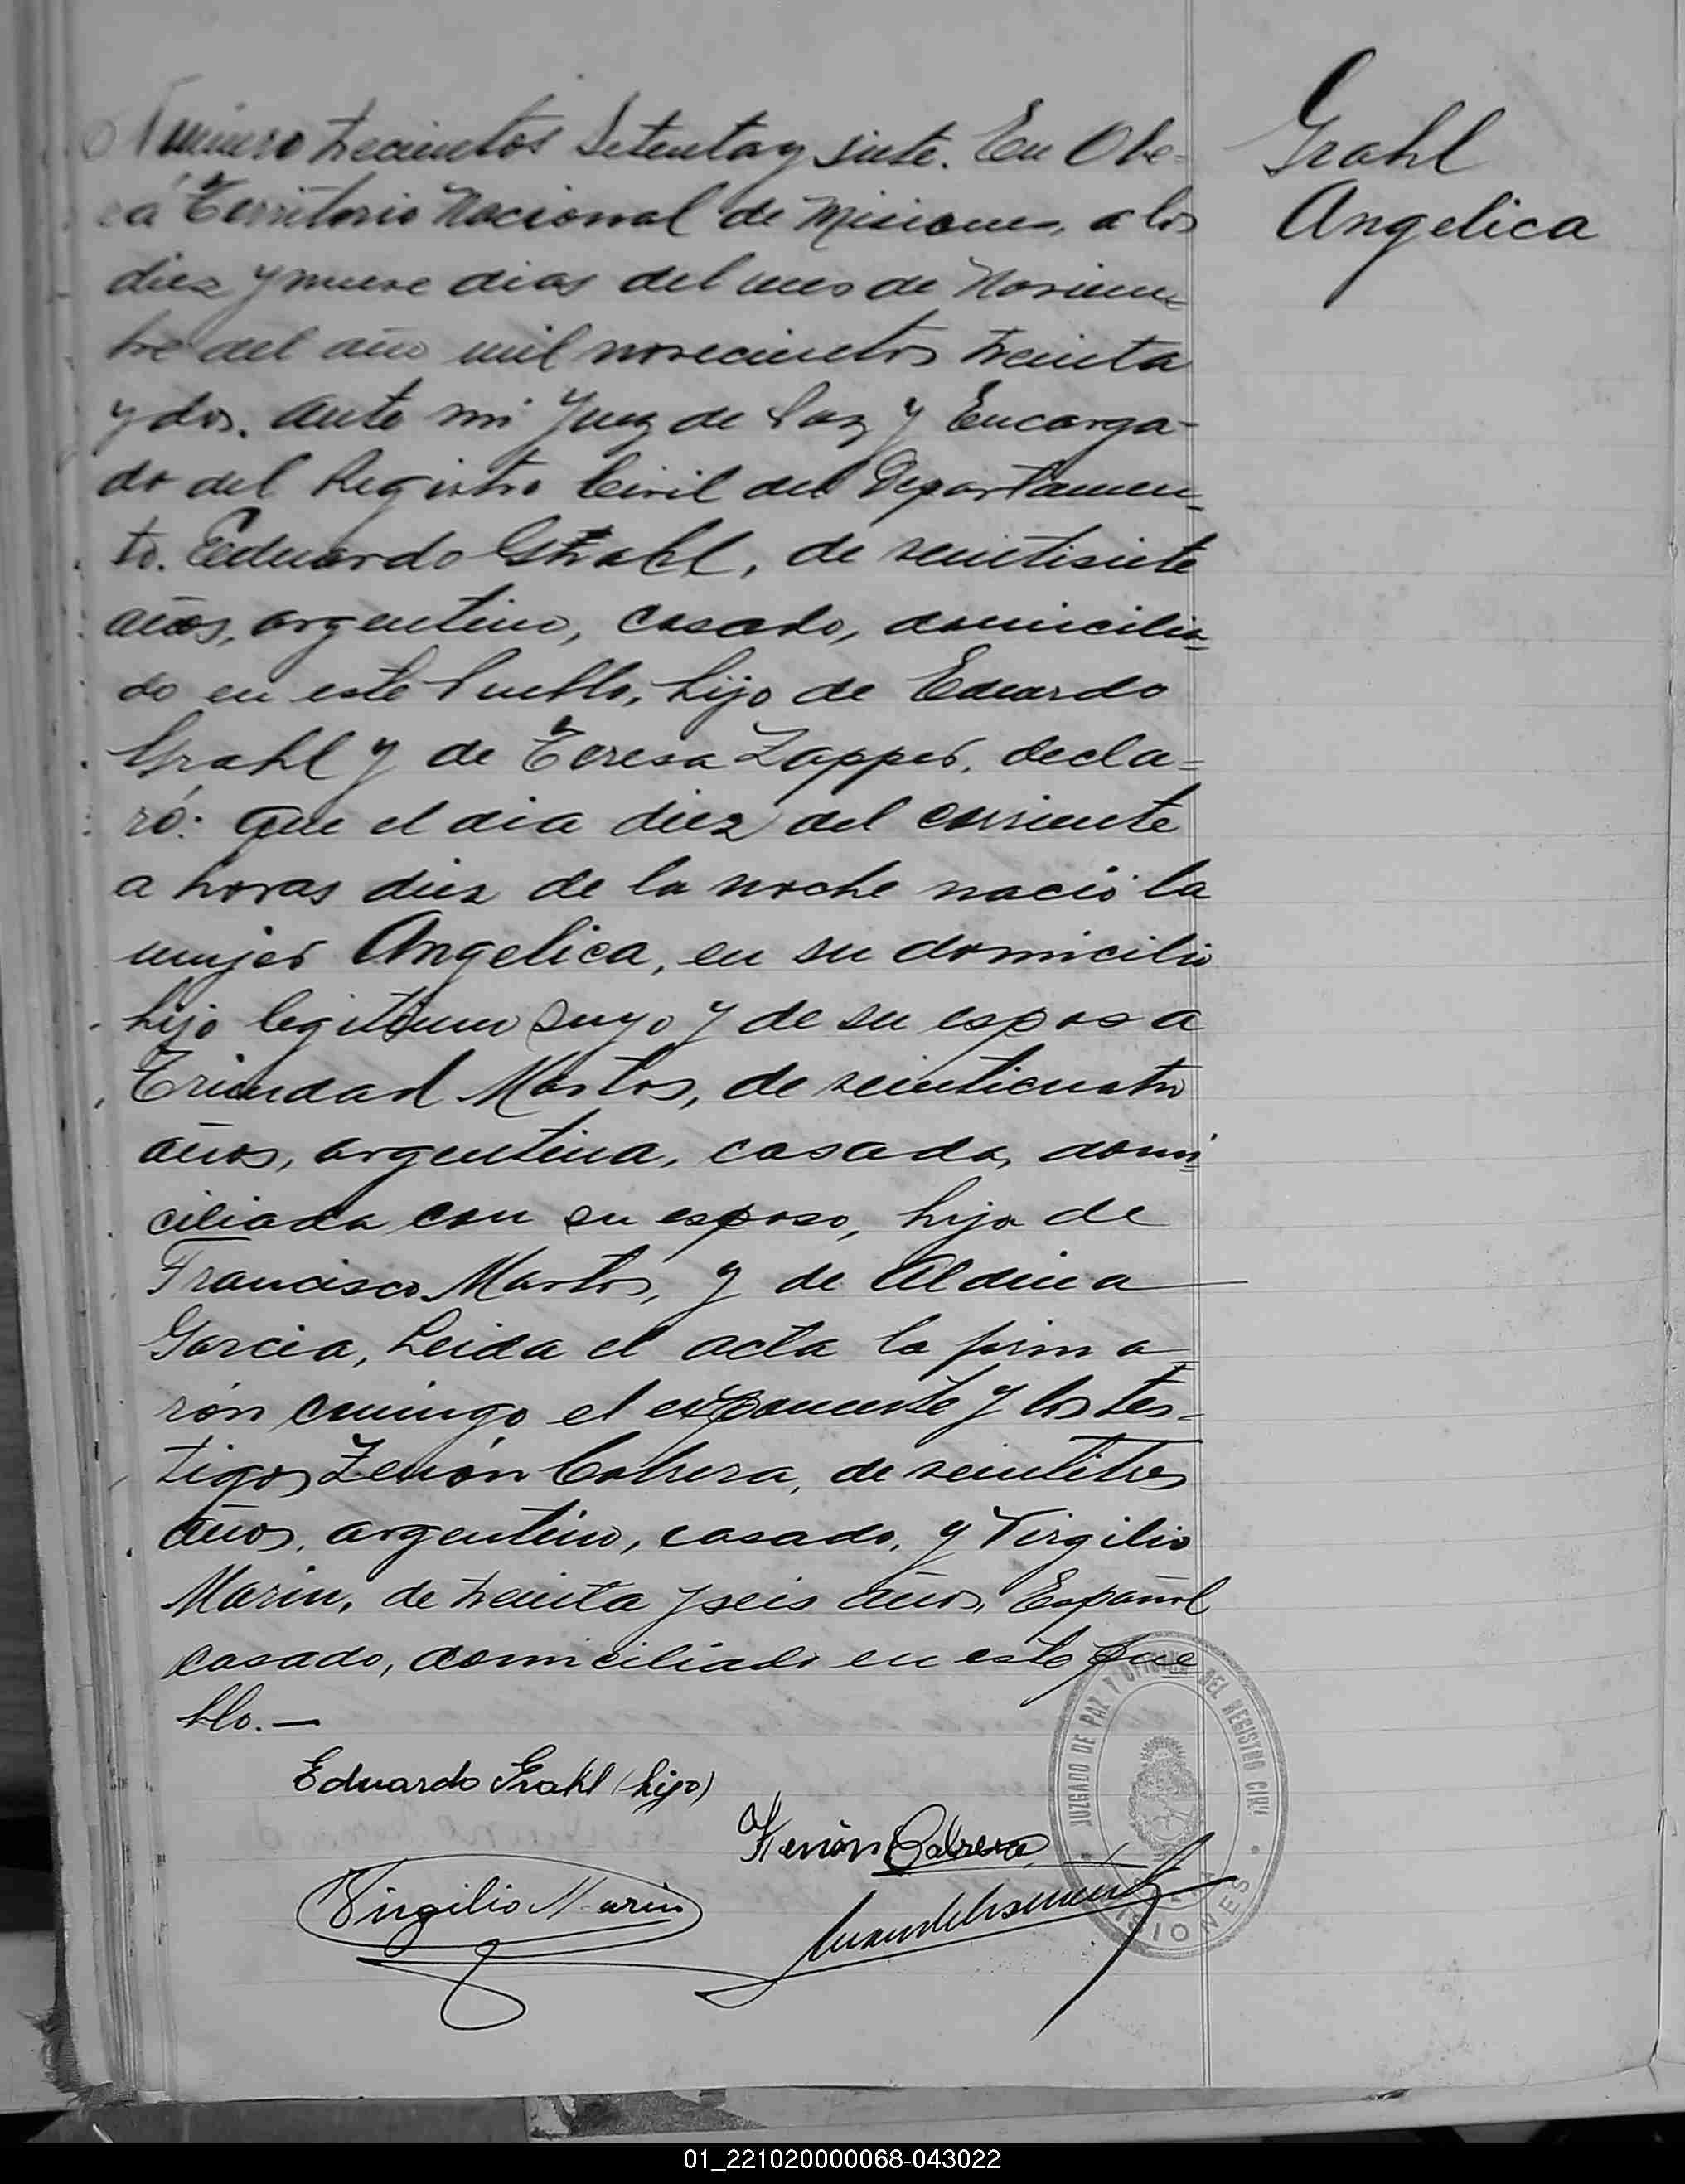 Numero trecientos Setenta y siete. En Obe-
rá Territorio Nacional de Misiones, a los
diez y nueve dias del mes de Noviem-
bre del año mil novecientos treinta
y dos. ante mi Juez de Paz y Encarga-
do del Registro Civil del Departamen-
to. Eduardo Grahl, de veintisiete
años, argentino, casado, domicilia-
do en este Pueblo, hijo de Eduardo
Grahl y de Teresa Zapper, decla=
ró: que el dia diez del corriente
a horas diez de la noche nació la
mujer Angelica, en su domicilio
hijo legitimo suyo y de su esposa
Trinidad Martos, de veinticuatro
años, argentina, casada, domi
ciliada con su esposo, hija de
Francisco Martos, y de Aldina
Garcia, Leida el acta la firma
rón conmigo el exponente y los tes-
tigos Zenón Cabrera, de veintitres
años, argentino, casado, y Virgilio
Marin, de treinta y seis años, Español
casado, domiciliado en este pue
blo.—
Eduardo Grahl (hijo)
Zenón Cabrera
Virgilio Marin
Grahl
Angelica
JUZGADO DE PAZ Y OFICINA DEL REGISTRO CIVIL
MISIONES
01_221020000068-043022